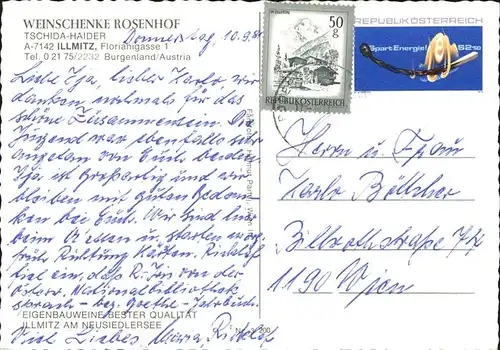 WEINSCHENKE ROSENHOF
TSCHIDA-HAIDER
A-7142 ILLMITZ, Florianigasse 1
Tel. 0 21 75/2232 Burgenland/Austria
Donnerstag, 10.9.81
Liebe Ija, lieber Karlo, wir
danken nochmals für das
schöne Zusammensein. Die
Jugend war ebenfalls sehr
angetan von Euch beiden.
Ija ist großartig und wir
bleiben mit guten Gedan-
ken bei Euch. Wir sind hier
beim und starten
früh Richtung Kärnten.
das von der
Österr. Nationalbibliothek
sprach - bez. Goethe-Jahrbuch.
EIGENBAUWEINE BESTER QUALITÄT
ILLMITZ AM NEUSIEDLERSEE
Viel Liebes,
50
g
REPUBLIK ÖSTERREICH
REPUBLIK ÖSTERREICH
Spart Energie!
Herrn u. Frau
Karlo Böttcher
Billrothstraße
1190 Wien